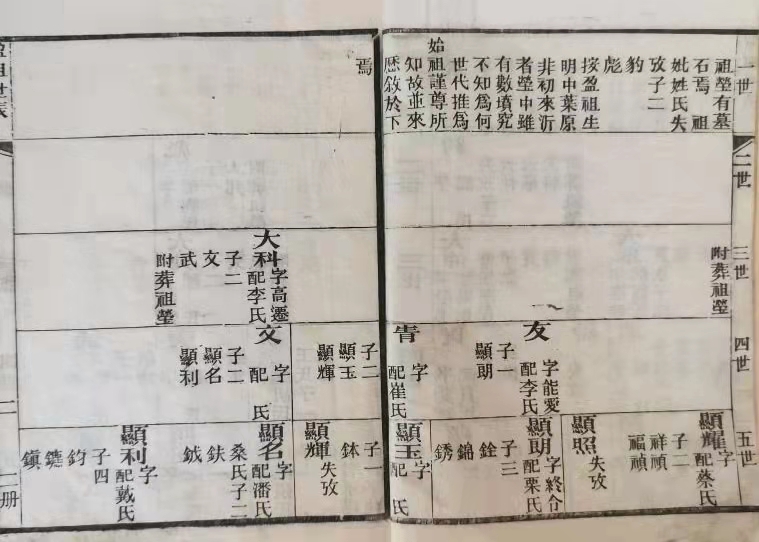 一世
祖塋有墓
石焉祖
妣姓氏失
攷子二
豹
彪
按盈祖生
明中葉原
非初來沂
者塋中雖
有數墳究
不知為何
世代推為
始祖謹尊所
知故並來
歷敘於下
焉
二世
三世
附葬祖塋
大科字高遷
配李氏
子二
文
武
附葬祖塋
四世
友字能愛
配李氏
子一
顯明
青字
配崔氏
子二
顯玉
顯輝
文字
配 氏
子二
顯名
顯利
五世
顯耀字
配蔡氏
子二
祥禎
福禎
顯照失攷
顯明字終令
配栗氏
子三
銓
錦
銹
顯玉字
配 氏
子一
鉢
顯輝失攷
顯名字
配潘氏
桑氏子二
鈇
鉞
顯利字
配戴氏
子四
鈞
鑣
鎮
盈祖世表
二
二册